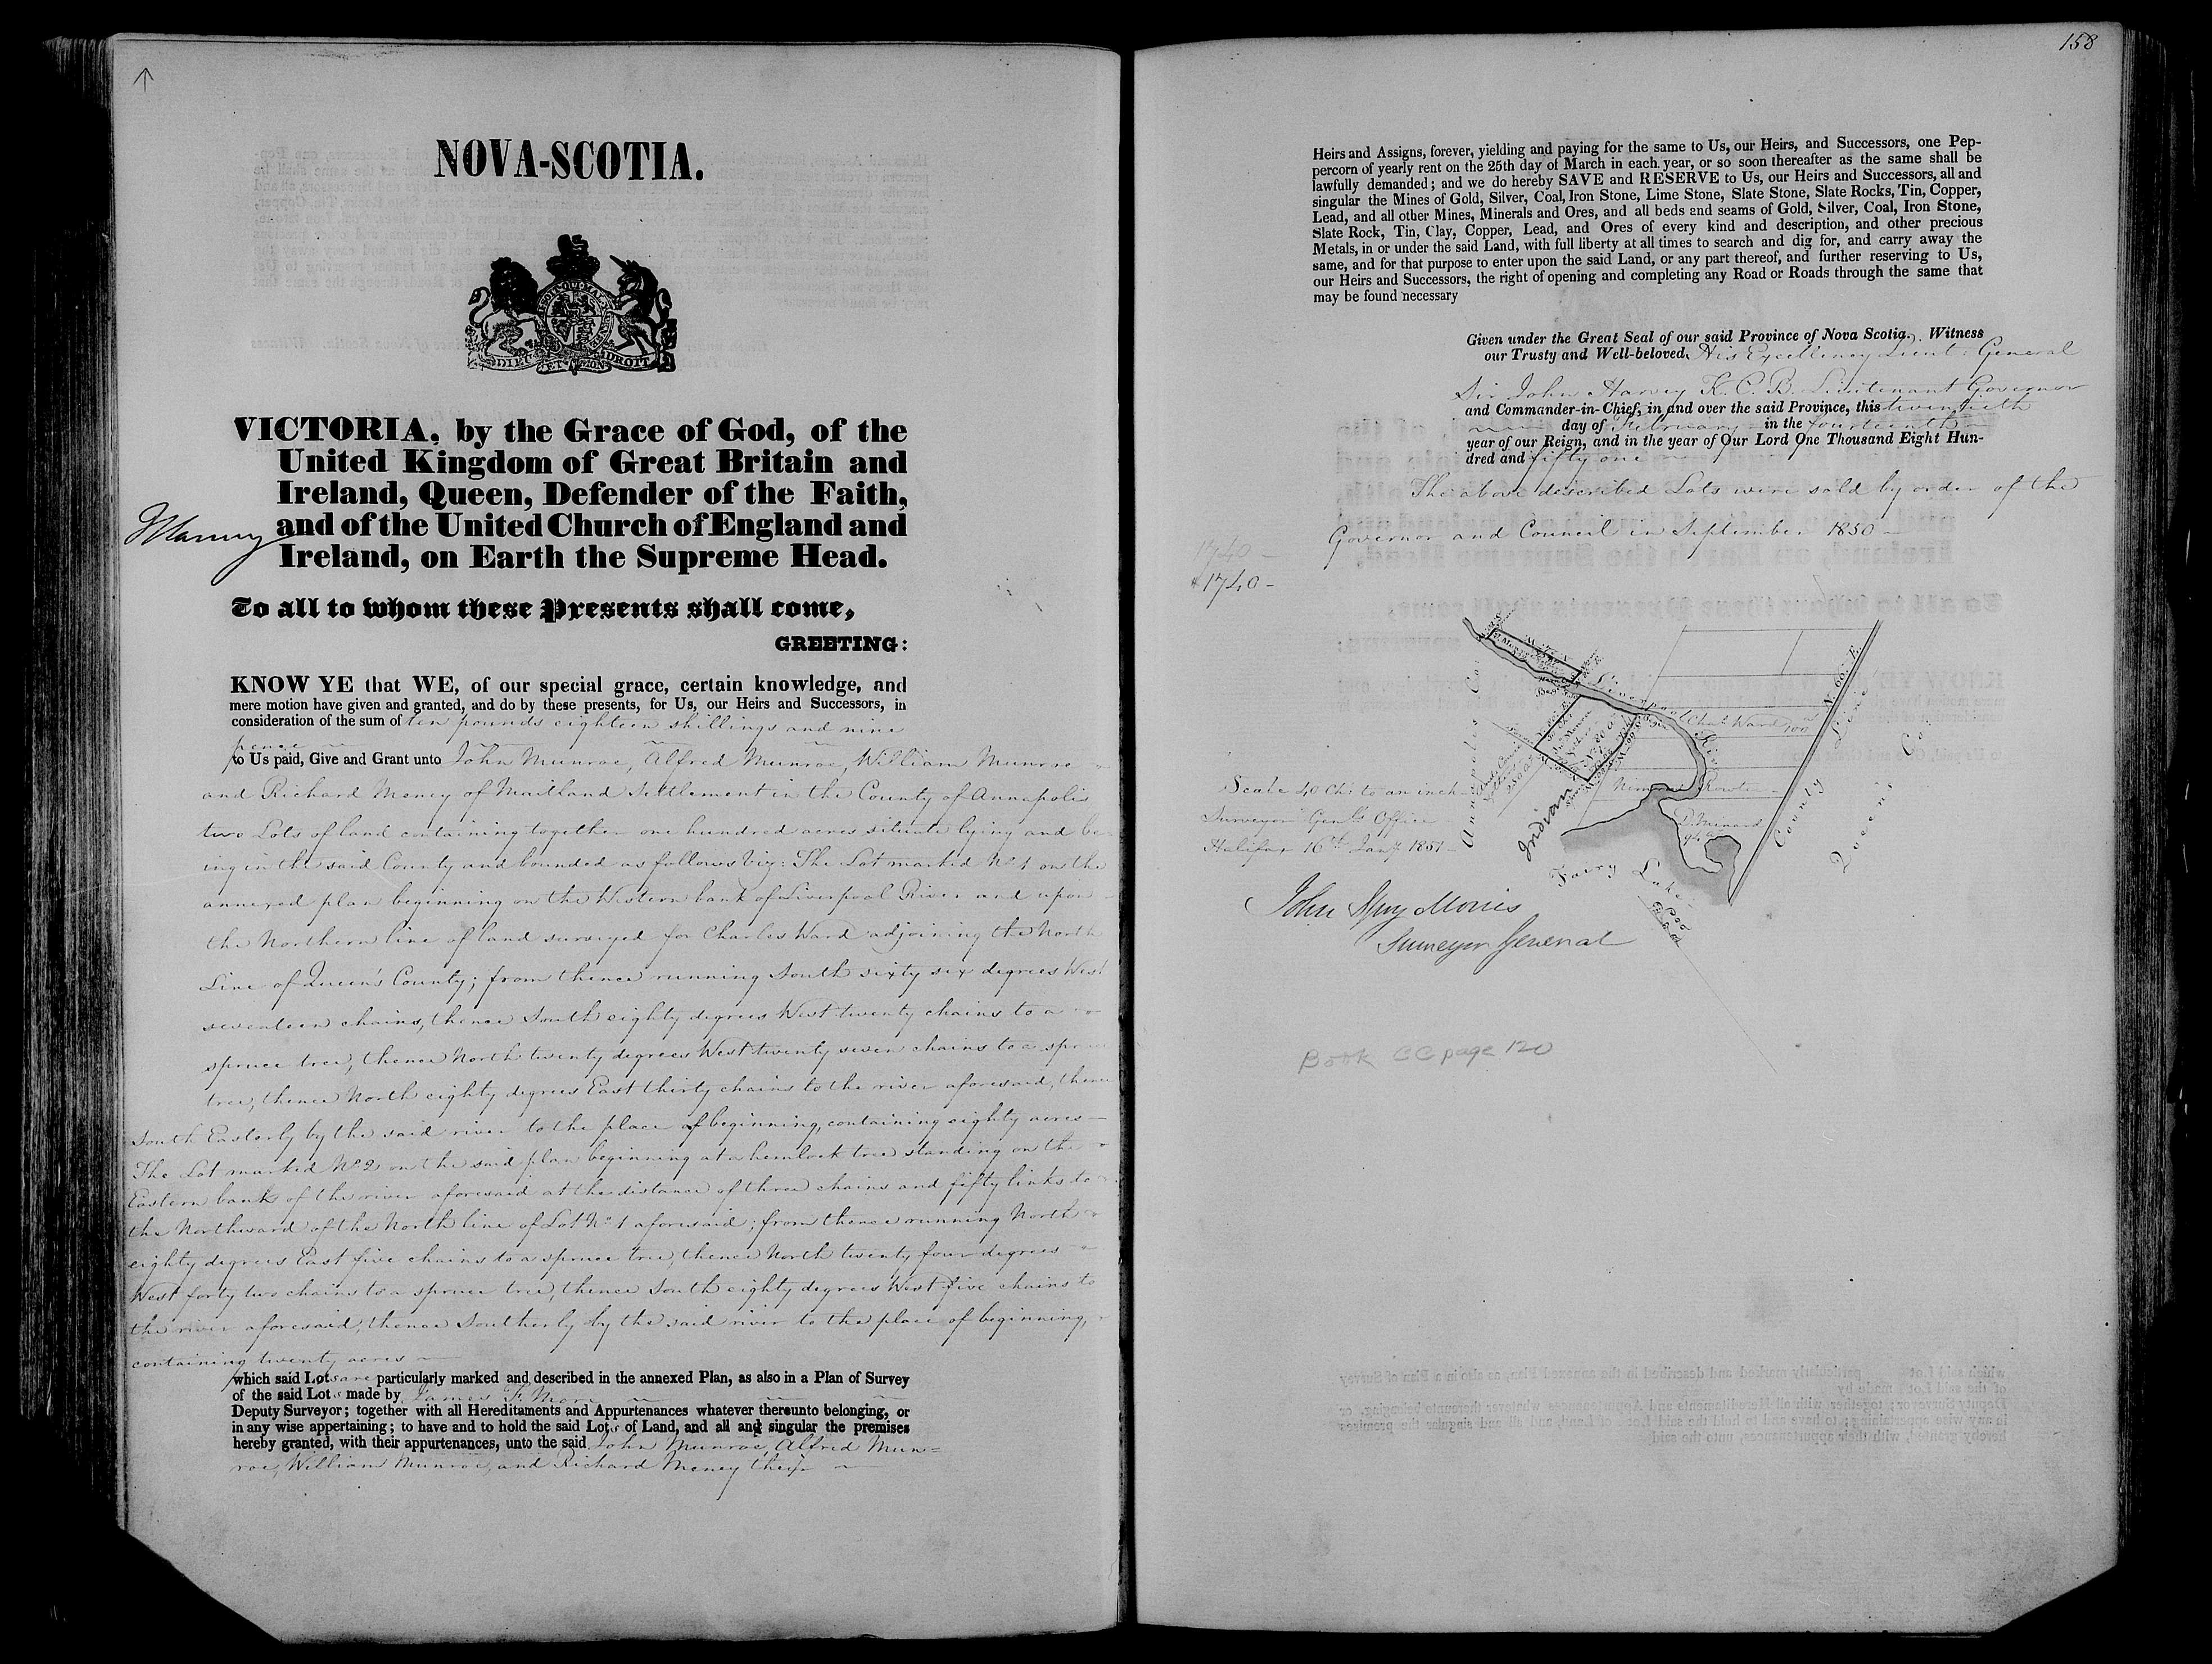 NOVA-SCOTIA.
DIEU ET MON DROIT
VICTORIA, by the Grace of God, of the
United Kingdom of Great Britain and
Ireland, Queen, Defender of the Faith,
and of the United Church of England and
Ireland, on Earth the Supreme Head.
To all to whom these Presents shall come,
GREETING:
KNOW YE that WE, of our special grace, certain knowledge, and
mere motion have given and granted, and do by these presents, for Us, our Heirs and Successors, in
consideration of the sum of ten pounds eighteen shillings and nine
pence
to Us paid, Give and Grant unto John Munroe, Alfred Munroe, William Munroe
and Richard Meney of Maitland Settlement in the County of Annapolis
two Lots of land containing together one hundred acres situate lying and be-
ing in the said County and bounded as follows viz: The Lot marked No. 1 on the
annexed plan beginning on the Western bank of Liverpool River and upon
the Northern line of land surveyed for Charles Ward adjoining the North
Line of Queen's County; from thence running South sixty six degrees West
seventeen chains, thence South eighty degrees West twenty chains to a
spruce tree, thence North twenty degrees West twenty seven chains to a spruce
tree, thence North eighty degrees East thirty chains to the river aforesaid, thence
South Easterly by the said river to the place of beginning, containing eighty acres —
The Lot marked No. 2 on the said plan beginning at a hemlock tree standing on the
Eastern bank of the river aforesaid at the distance of three chains and fifty links to
the Northward of the North line of Lot No. 1 aforesaid; from thence running North
eighty degrees East five chains to a spruce tree, thence North twenty four degrees
West forty two chains to a spruce tree, thence South eighty degrees West five chains to
the river aforesaid, thence Southerly by the said river to the place of beginning,
containing twenty acres
which said Lots are particularly marked and described in the annexed Plan, as also in a Plan of Survey
of the said Lots made by James F. More
Deputy Surveyor; together with all Hereditaments and Appurtenances whatever thereunto belonging, or
in any wise appertaining; to have and to hold the said Lots of Land, and all and singular the premises
hereby granted, with their appurtenances, unto the said John Munroe, Alfred Mun=
roe, William Munroe, and Richard Meney their
158
Heirs and Assigns, forever, yielding and paying for the same to Us, our Heirs, and Successors, one Pep-
percorn of yearly rent on the 25th day of March in each year, or so soon thereafter as the same shall be
lawfully demanded; and we do hereby SAVE and RESERVE to Us, our Heirs and Successors, all and
singular the Mines of Gold, Silver, Coal, Iron Stone, Lime Stone, Slate Stone, Slate Rocks, Tin, Copper,
Lead, and all other Mines, Minerals and Ores, and all beds and seams of Gold, Silver, Coal, Iron Stone,
Slate Rock, Tin, Clay, Copper, Lead, and Ores of every kind and description, and other precious
Metals, in or under the said Land, with full liberty at all times to search and dig for, and carry away the
same, and for that purpose to enter upon the said Land, or any part thereof, and further reserving to Us,
our Heirs and Successors, the right of opening and completing any Road or Roads through the same that
may be found necessary
Given under the Great Seal of our said Province of Nova Scotia. Witness
our Trusty and Well-beloved His Excellency Lieut: General
Sir John Harvey K. C. B. Lieutenant Governor
and Commander-in-Chief, in and over the said Province, this twentieth
day of February in the fourteenth
year of our Reign, and in the year of Our Lord One Thousand Eight Hun-
dred and fifty one
The above described Lots were sold by order of the
Governor and Council in September 1850 —
1740 —
1740 —
Annapolis Co.
Liverpool River
Chas. Ward 100
N. 66 E.
County Line
Queens Co.
Indian
D. Meuard
Fairy Lake
Scale 40 Ch: to an inch
Surveyor Genl's Office
Halifax 16th Jany 1851
John Spry Morris
Surveyor General
Book CC page 120